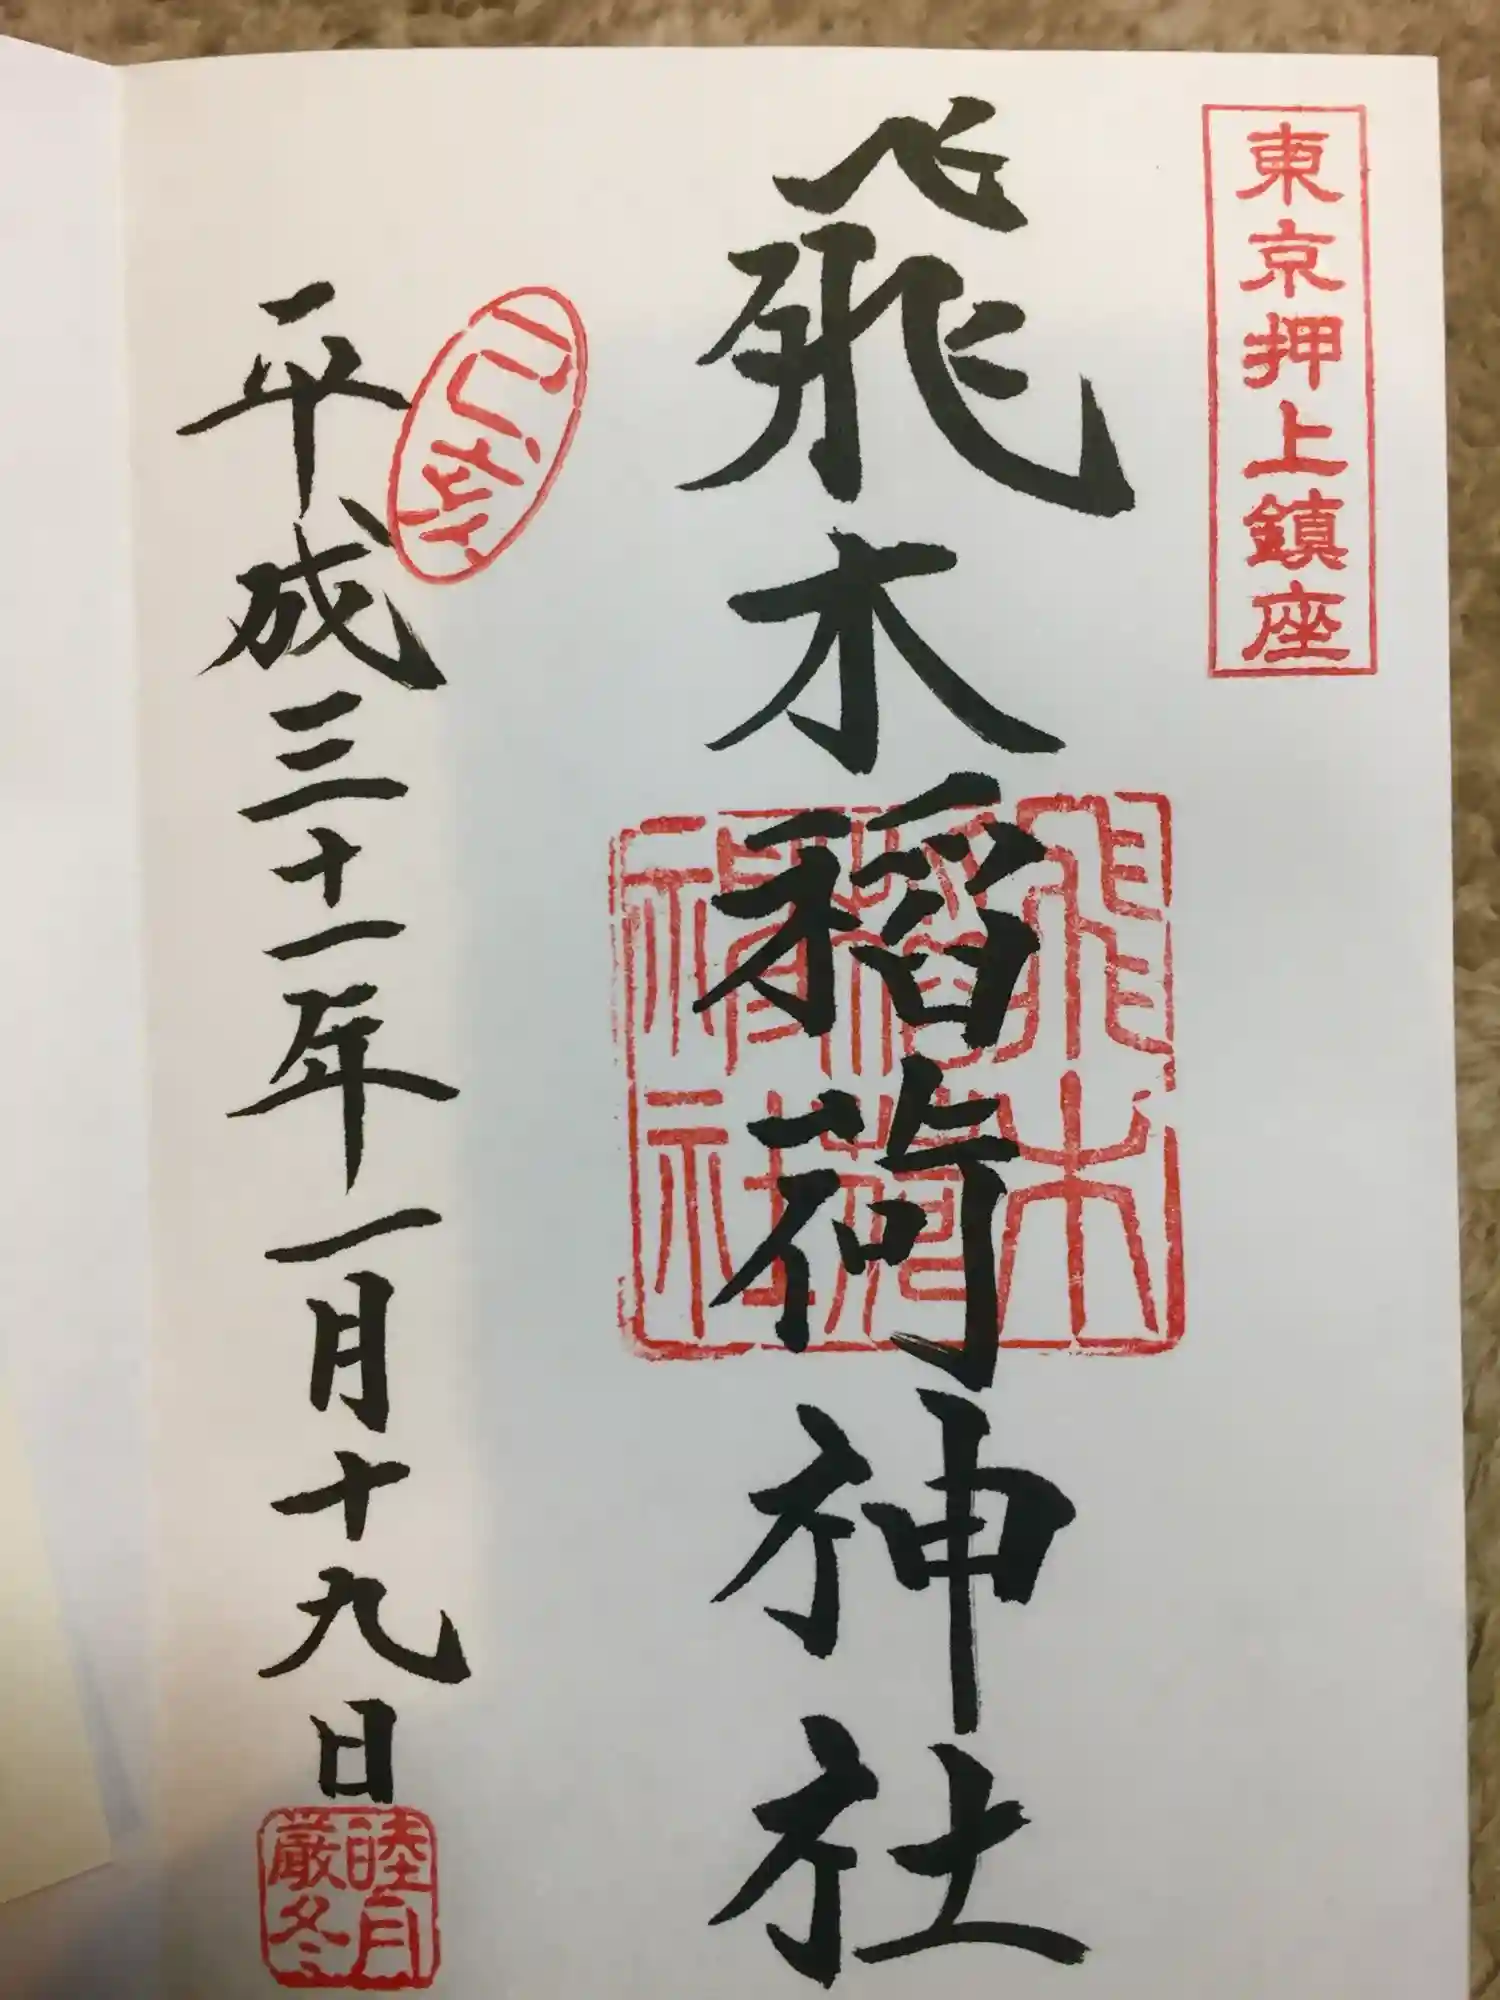 東京押上鎮座
飛木稲荷神社
飛木
稲荷
神社
平成三十一年一月十九日
睦月
厳冬